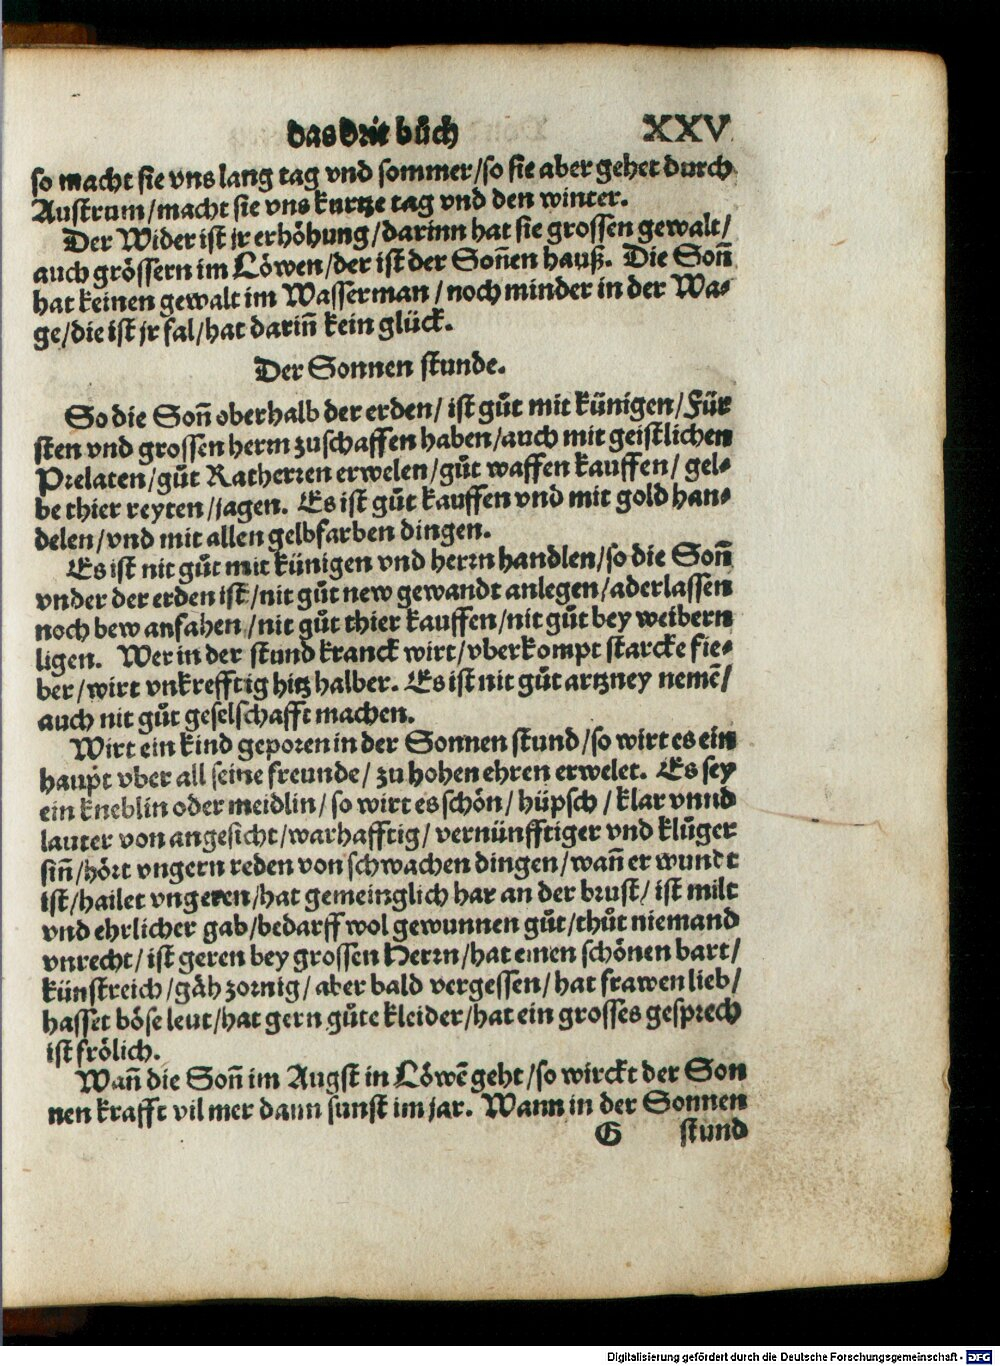 das drit bůch XXV
so macht sie vns lang tag vnd sommer/so sie aber gehet durch
Austrum/macht sie vns kurtze tag vnd den winter.
Der Wider ist jr erhöhung/darinn hat sie grossen gewalt/
auch grössern im Löwen/der ist der Soñen hauß. Die Soñ
hat keinen gewalt im Wasserman/noch minder in der Wa⸗
ge/die ist jr fal/hat dariñ kein glück.
Der Sonnen stunde.
So die Soñ oberhalb der erden/ ist gůt mit künigen/Für
sten vnd grossen herrn zuschaffen haben/auch mit geistlichen
Prelaten/gůt Ratherren erwelen/gůt waffen kauffen/ gel⸗
be thier reyten/jagen. Es ist gůt kauffen vnd mit gold han⸗
delen/vnd mit allen gelbfarben dingen.
Es ist nit gůt mit künigen vnd herrn handlen/so die Soñ
vnder der erden ist/nit gůt new gewandt anlegen/aderlassen
noch bew anfahen/nit gůt thier kauffen/nit gůt bey weibern
ligen. Wer in der stund kranck wirt/vberkompt starcke fie⸗
ber/wirt vnkrefftig hitz halber. Es ist nit gůt artzney nemẽ/
auch nit gůt geselschafft machen.
Wirt ein kind geporen in der Sonnen stund/so wirt es ein
haupt vber all seine freunde/ zu hohen ehren erwelet. Es sey
ein kneblin oder meidlin/ so wirt es schön/ hüpsch/ klar vnnd
lauter von angesicht/warhafftig/ vernünfftiger vnd klůger
siñ/hört vngern reden von schwachen dingen/wañ er wundt
ist/hailet vngeren/hat gemeinglich har an der brust/ ist milt
vnd ehrlicher gab/bedarff wol gewunnen gůt/thůt niemand
vnrecht/ ist geren bey grossen Herrn/hat einen schönen bart/
künstreich/gäh zornig/ aber bald vergessen/ hat frawen lieb/
hasset böse leut/hat gern gůte kleider/hat ein grosses gesprech
ist frölich.
Wañ die Soñ im Augst in Löwẽ geht/so wirckt der Son
nen krafft vil mer dann sunst im jar. Wann in der Sonnen
G stund
Digitalisierung gefördert durch die Deutsche Forschungsgemeinschaft - DFG